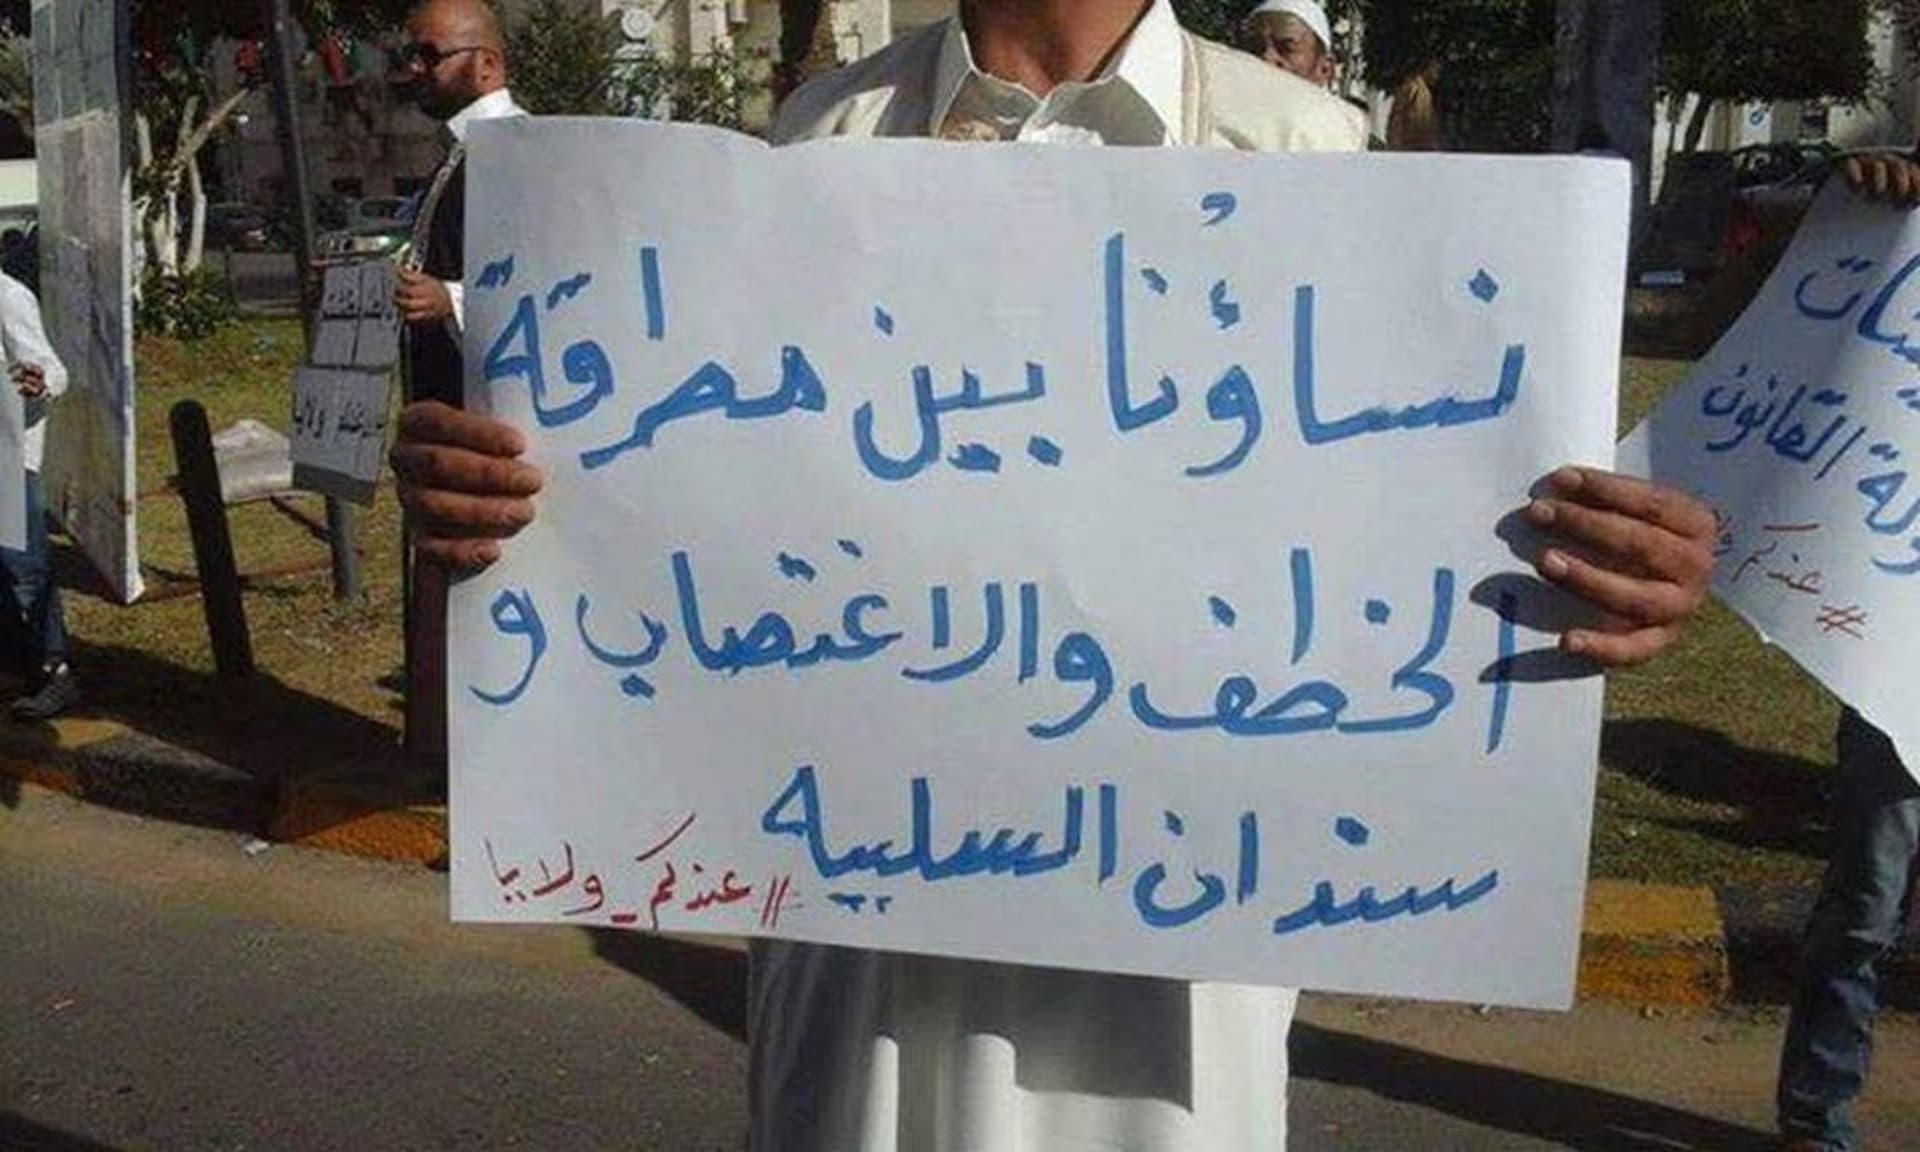 نساؤُنا بين مطرقة
الخطف والاغتصاب و
سندان السلبيه
#عندكم_ولايا
القانون
#عندكم